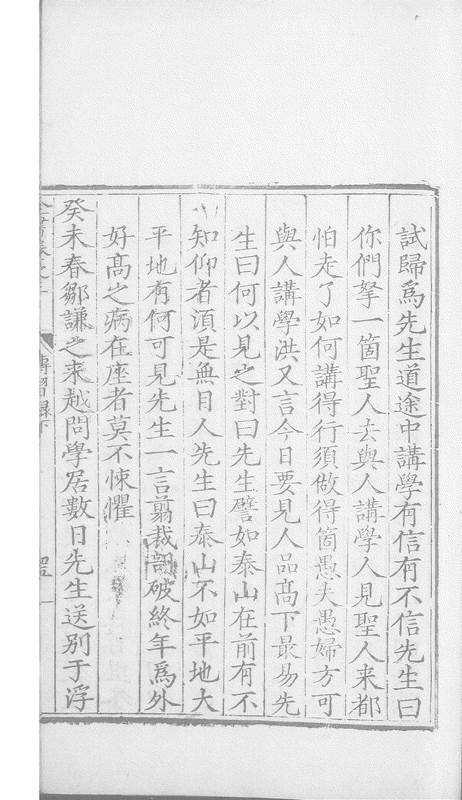 試歸爲先生道途中講學有信有不信先生曰
你們拏一箇聖人去與人講學人見聖人來都
怕走了如何講得行須做得箇愚夫愚婦方可
與人講學洪又言今日要見人品髙下最易先
生曰何以見之對曰先生譬如泰山在前有不
知仰者須是無目人先生曰泰山不如平地大
平地有何可見先生一言翦裁剖破終年爲外
好髙之病在座者莫不悚懼
癸未春鄒謙之來越問學居數日先生送別于浮
傳習録下